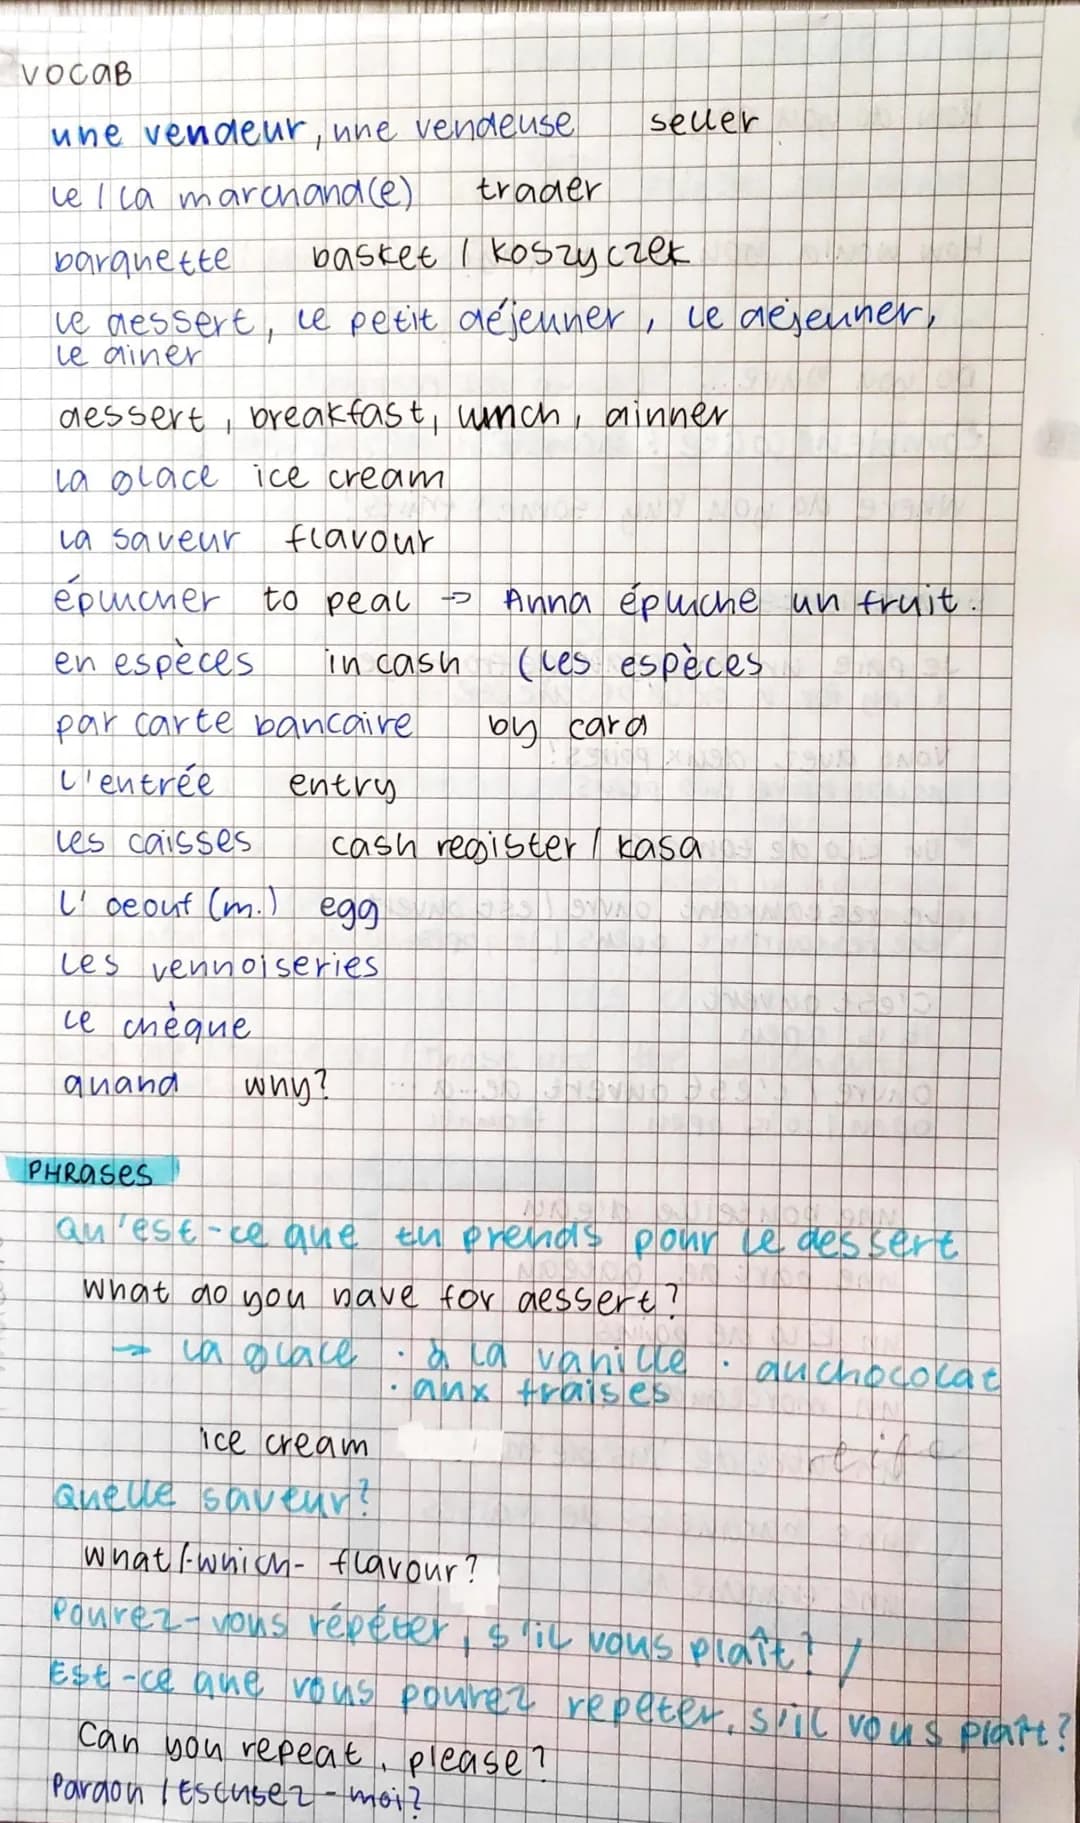 VOCAB
une vendeur, une vendeuse seller
le / la marchand(e) trader
barquette basket / koszyczek
le dessert, le petit déjeuner, le déjeuner,
le diner
dessert, breakfast, lunch, dinner
la glace ice cream
la saveur flavour
éplucher to peal → Anna épluche un fruit.
en espèces in cash (les espèces
par carte bancaire by card
l'entrée entry
les caisses cash register / kasa
l' oeouf (m.) egg
les vennoiseries
le chèque
quand why?
PHRASES
qu'est-ce que tu prends pour le dessert
what do you have for dessert?
→ la glace · à la vanille · au chocolat
· aux fraises
ice cream
Quelle saveur?
what /-which- flavour?
Pourez-vous répéter, s'il vous plaît? /
Est-ce que vous pourez repeter, s'il vous plaît?
Can you repeat, please?
Pardon / Escusez-moi?